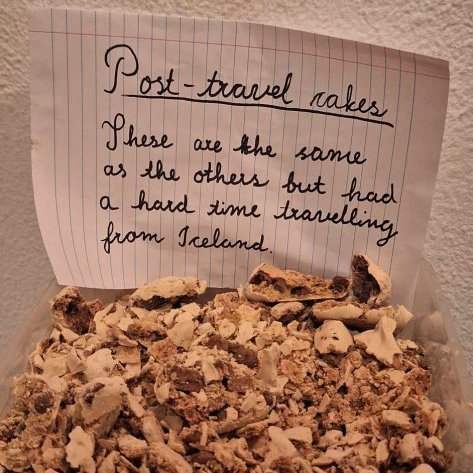 Post-travel cakes
These are the same
as the others but had
a hard time travelling
from Iceland.